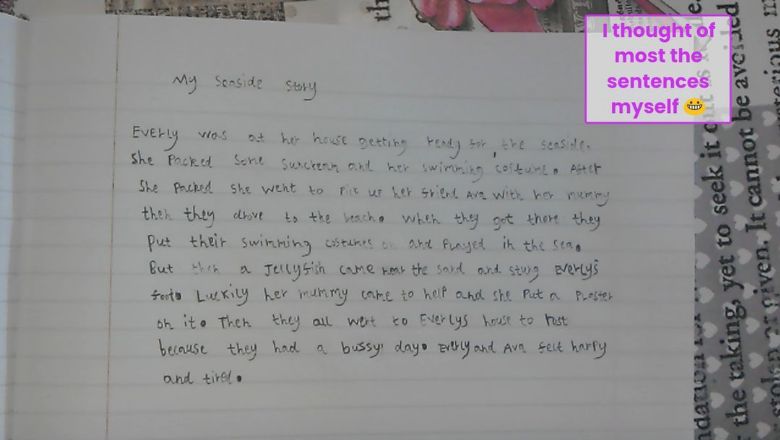 I thought of
most the
sentences
myself 😀
My Seaside Story
Everly was at her house getting ready for, the seaside.
She Packed some suncream and her swimming costume. After
She Packed she went to Pick up her friend Ava with her mummy
then they drove to the beach. When they got there they
Put their swimming costumes on and Played in the sea.
But then a Jellyfish came near the sand and stung Everlys
foot. Luckily her mummy came to help and she Put a Plaster
on it. Then they all went to Everlys house to rest
because they had a bussy day. Everly and Ava felt happy
and tired.
th
the taking, yet to seek it
given. It cannot be avoided